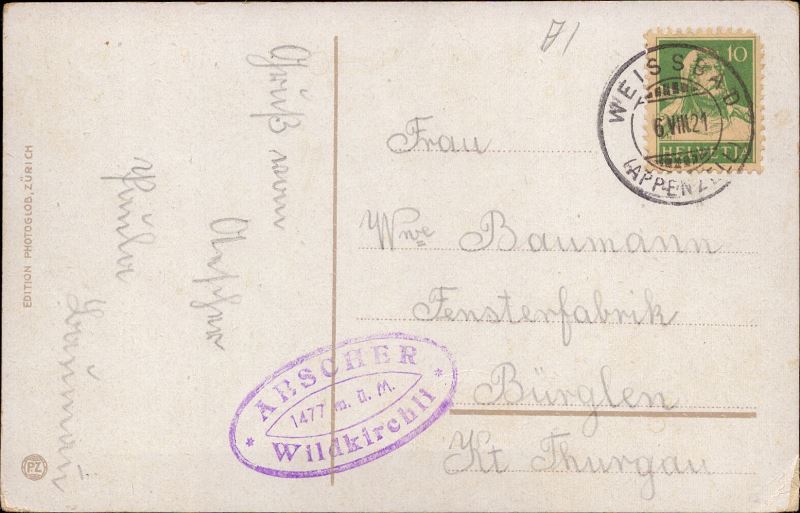 Gruß vom
Aescher
EDITION PHOTOGLOB, ZÜRICH
PZ
71
10
HELVETIA
WEISSBAD
6.VIII.21
(APPENZELL)
Frau
Wwe Baumann
Fensterfabrik
Bürglen
Kt Thurgau
AESCHER
1477 m. ü. M.
* Wildkirchli *